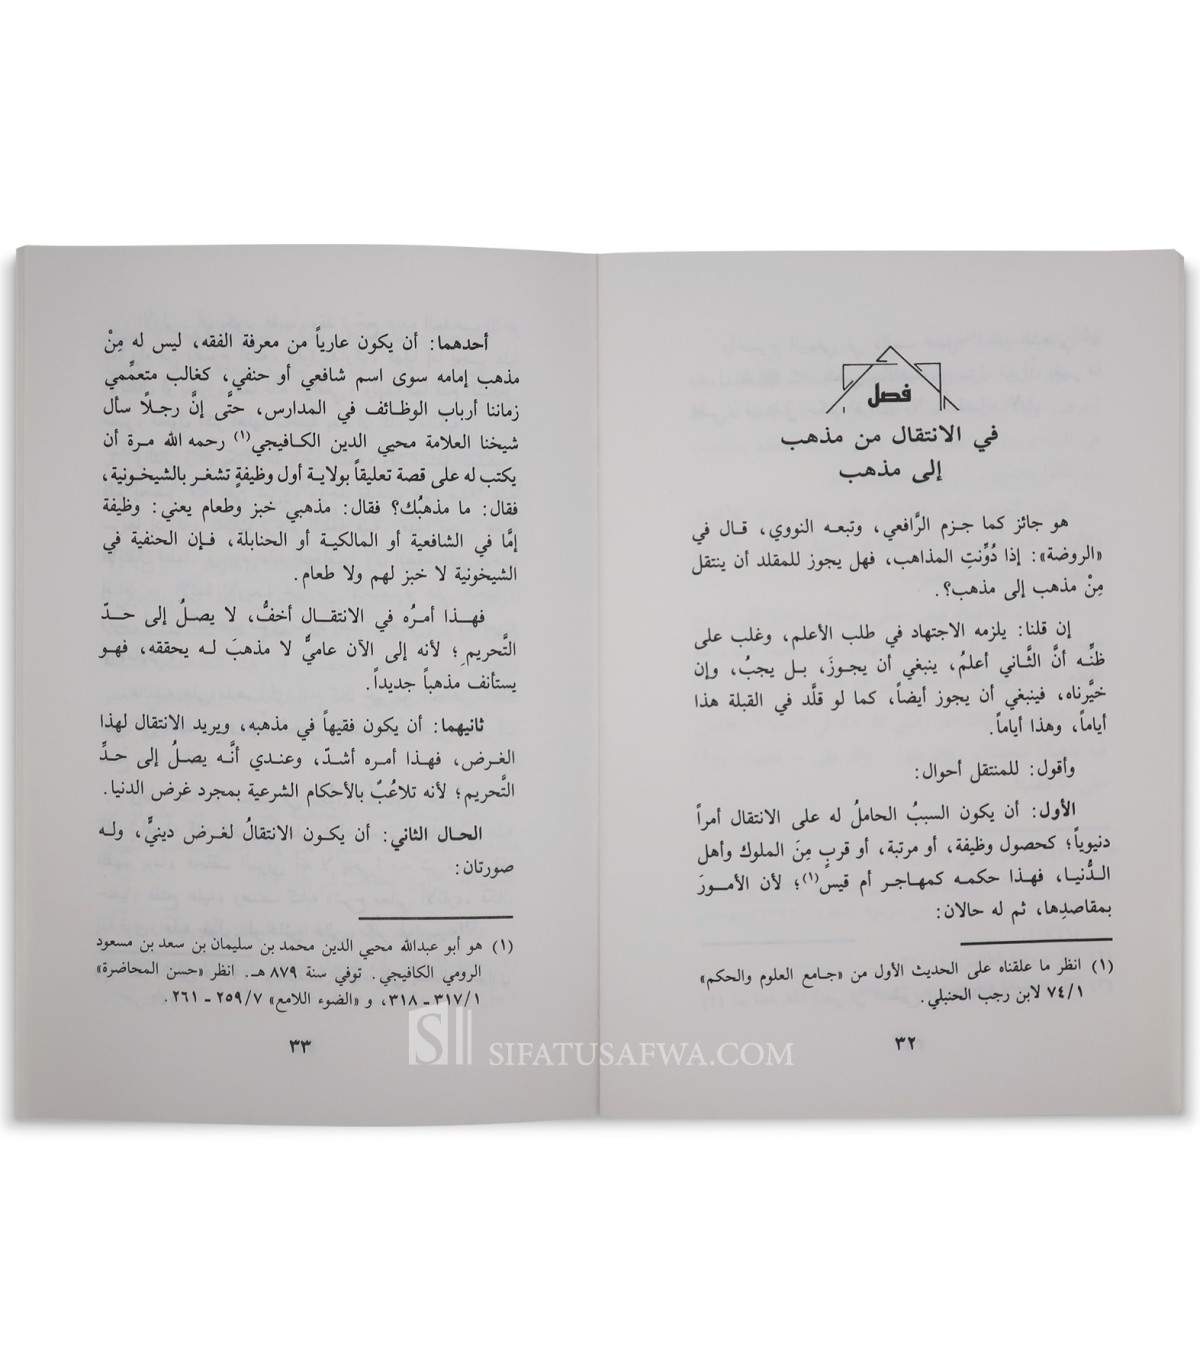 فصل
في الانتقال من مذهب
إلى مذهب
هو جائز كما جـزم الرَّافعي، وتبعـه النووي، قـال في
«الروضة»: إذا دُوِّنتِ المذاهب، فهل يجوز للمقلد أن ينتقل
مِنْ مذهب إلى مذهب؟.
إن قلنا: يلزمه الاجتهاد في طلب الأعلم، وغلب على
ظنِّـه أنَّ الثَّـاني أعلمُ، ينبغي أن يجـوزَ، بـل يجبُ، وإن
خيَّرناه، فينبغي أن يجوز أيضاً، كما لو قلَّد في القبلة هذا
أياماً، وهذا أياماً.
وأقول: للمنتقل أحوال:
الأول: أن يكون السببُ الحاملُ له على الانتقال أمراً
دنيوياً؛ كحصول وظيفة، أو مرتبة، أو قربٍ مِنَ الملوك وأهل
الـدُّنيـا، فهـذا حكمـه كمهـاجـر أم قيس(١)؛ لأن الأمـورَ
بمقاصدِها، ثم له حالان:
(١) انظر ما علقناه على الحديث الأول من «جـامع العلوم والحكم»
٧٤/١ لابن رجب الحنبلي.
٣٢
أحدهما: أن يكون عارياً من معرفة الفقه، ليس له مِنْ
مذهب إمامه سوى اسم شافعي أو حنفي، كغالب متعمِّمي
زماننا أرباب الوظـائف في المدارس، حتَّى إنَّ رجـلاً سأل
شيخنا العلامة محيي الدين الكـافيجي(١) رحمه الله مـرة أن
يكتب له على قصة تعليقاً بولايـة أول وظيفةٍ تشغـر بالشيخـونية،
فقال: ما مذهبُك؟ فقال: مذهبي خبز وطعام يعني: وظيفة
إمَّا في الشافعية أو المالكيـة أو الحنابلة، فـإن الحنفية في
الشيخونية لا خبز لهم ولا طعام.
فهـــذا أمـرُه في الانتقـــال أخفُّ، لا يصـلُ إلى حـــدّ
التَّحريمِ؛ لأنه إلى الآن عاميٌّ لا مذهبَ لـه يحققه، فهـو
يستأنف مذهباً جديداً.
ثانيهما: أن يكون فقيهاً في مذهبه، ويريد الانتقال لهذا
الغـرض، فهـذا أمـره أشـدّ، وعنـدي أنَّـه يصـلُ إلى حـدِّ
التَّحريم؛ لأنه تلاعُبٌ بالأحكام الشرعية بمجرد غرض الدنيا.
الحـال الثاني: أن يكـون الانتقالُ لغـرض دينيٍّ، ولـه
صورتان:
(١) هو أبو عبدالله محيي الدين محمد بن سليمان بن سعد بن مسعود
الرومي الكافيجي. توفي سنة ٨٧٩ هـ. انظر «حسن المحاضرة»
٣١٧/١ ـ ٣١٨، و «الضوء اللامع» ٢٥٩/٧ ـ ٢٦١.
٣٣
SIFATUSAFWA.COM